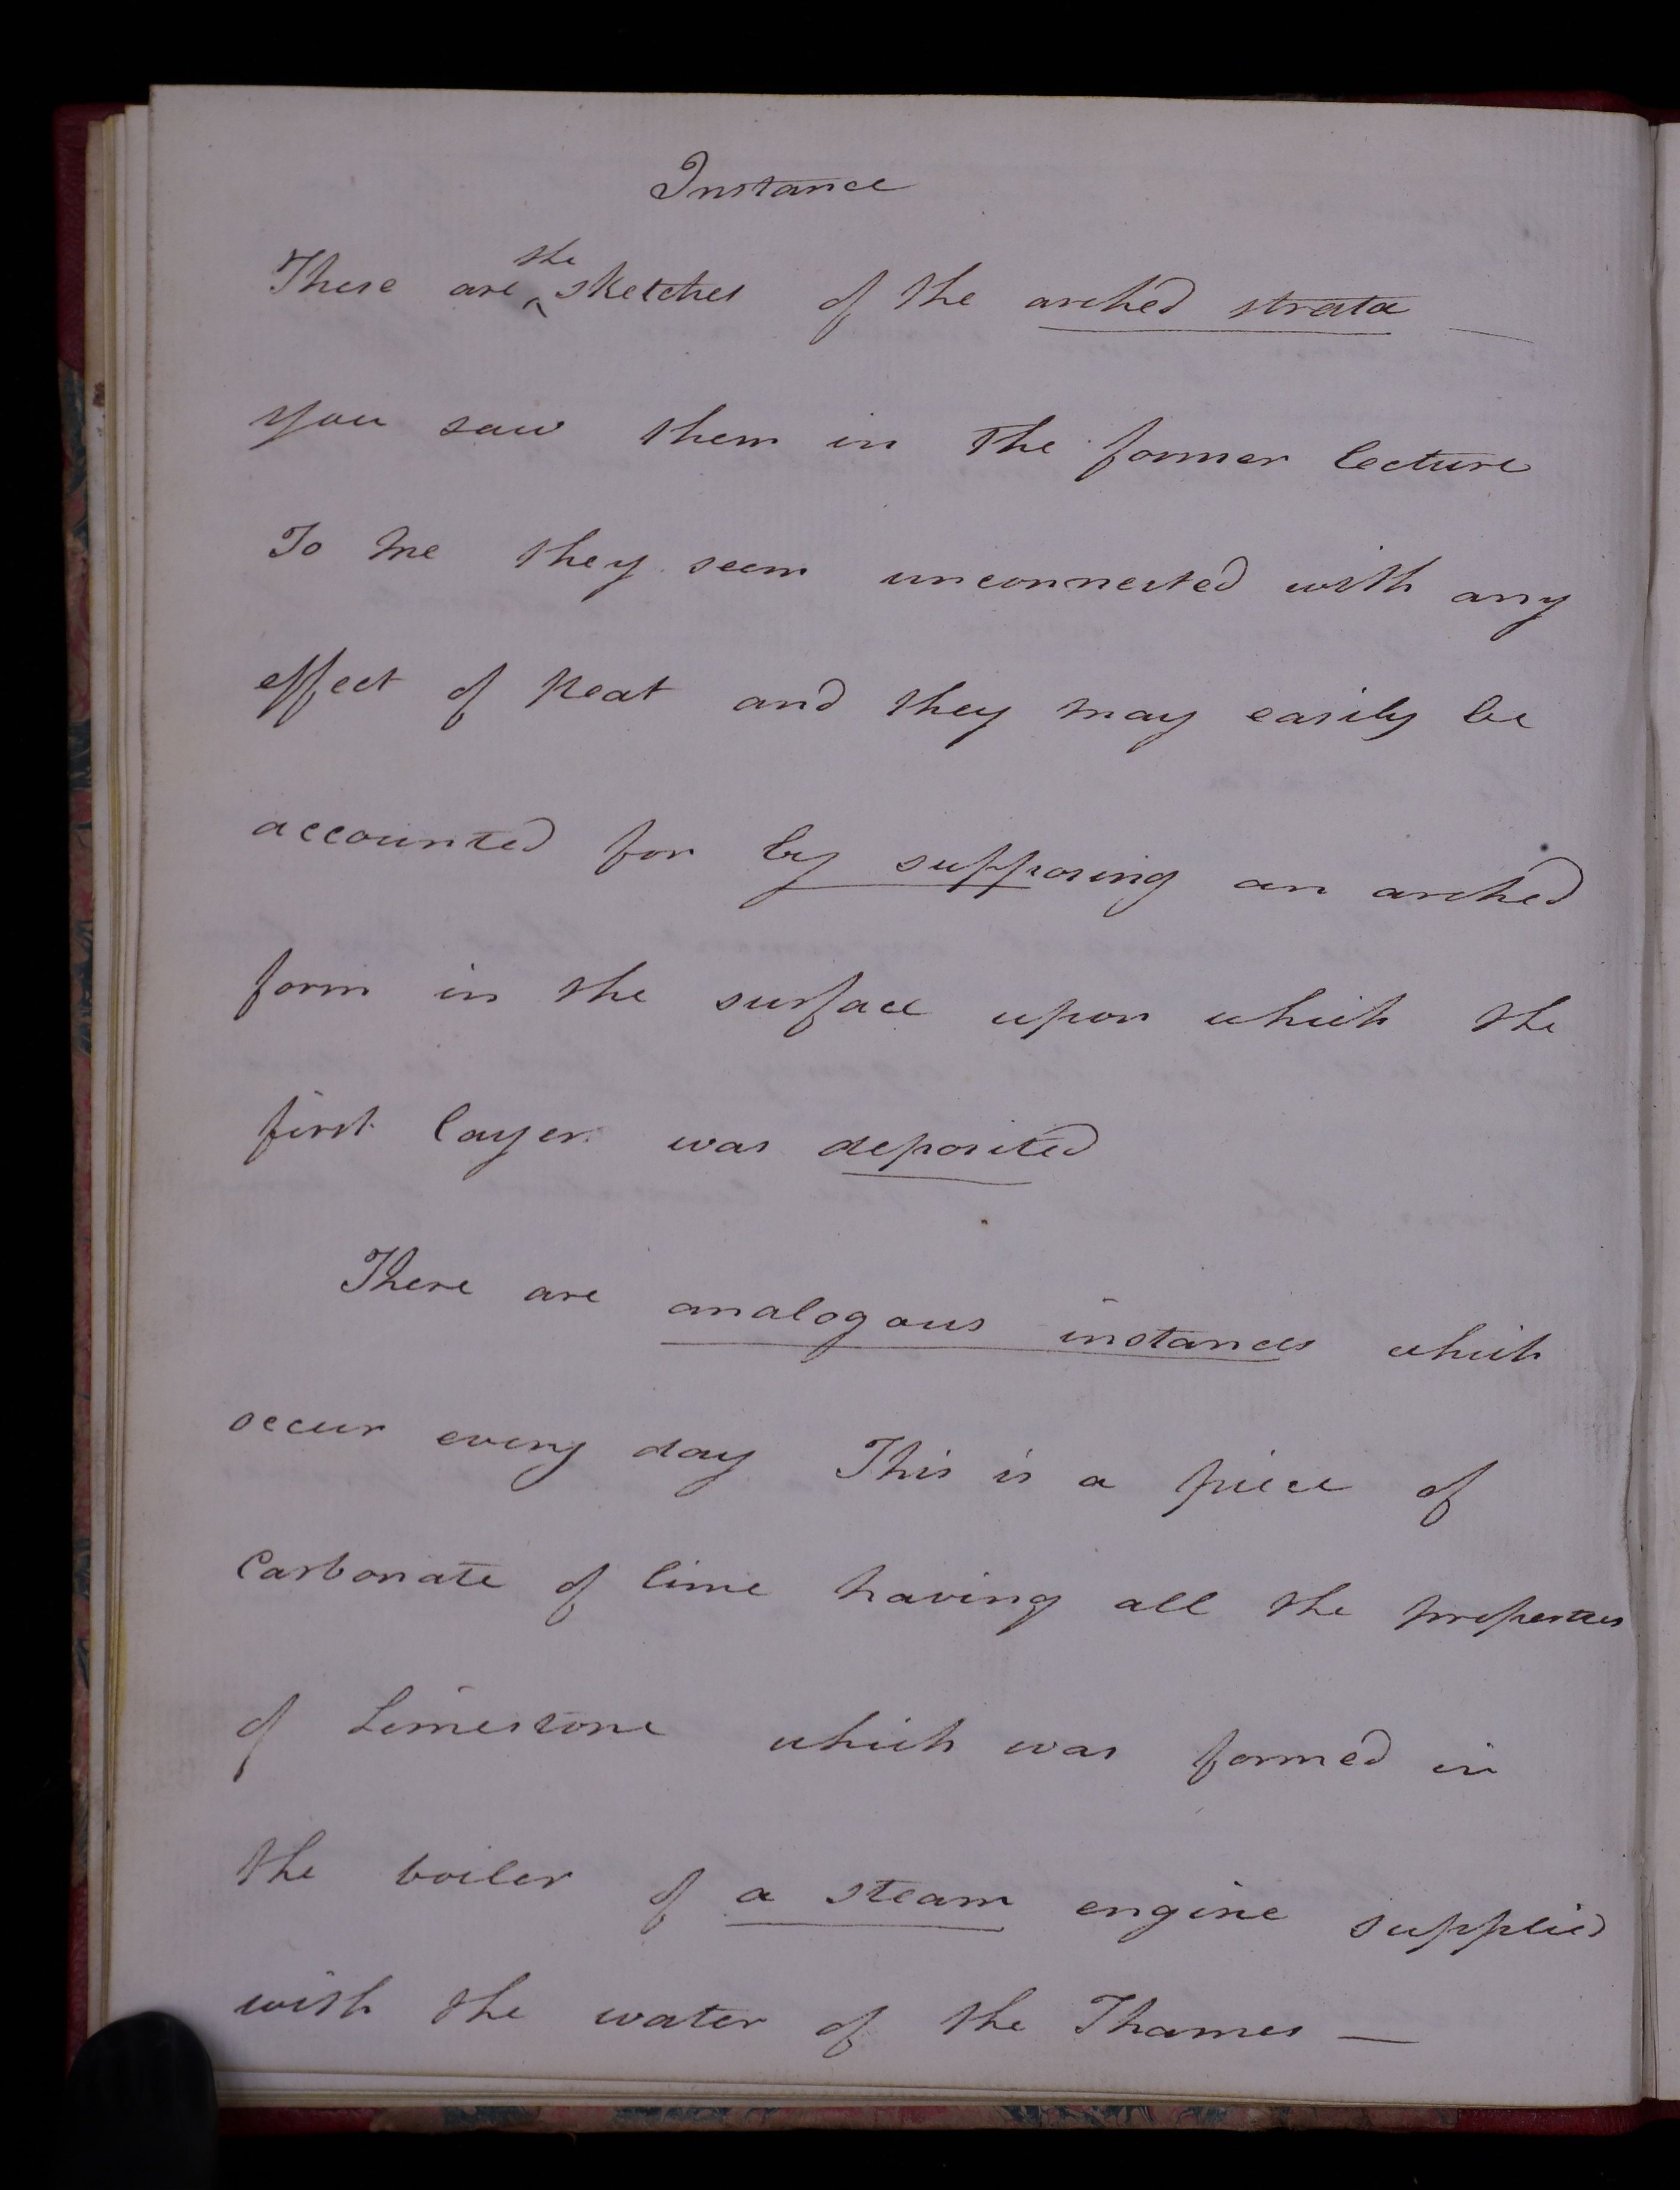 Instance
These are ^the sketches of the arched strata —
you saw them in the former lecture
To me they seem unconnected with any
effect of heat and they may easily be
accounted for by supposing an arched
form in the surface upon which the
first layer was deposited
There are analogous instances which
occur every day This is a piece of
Carbonate of lime having all the properties
of Limestone which was formed in
the boiler of a steam engine supplied
with the water of the Thames —